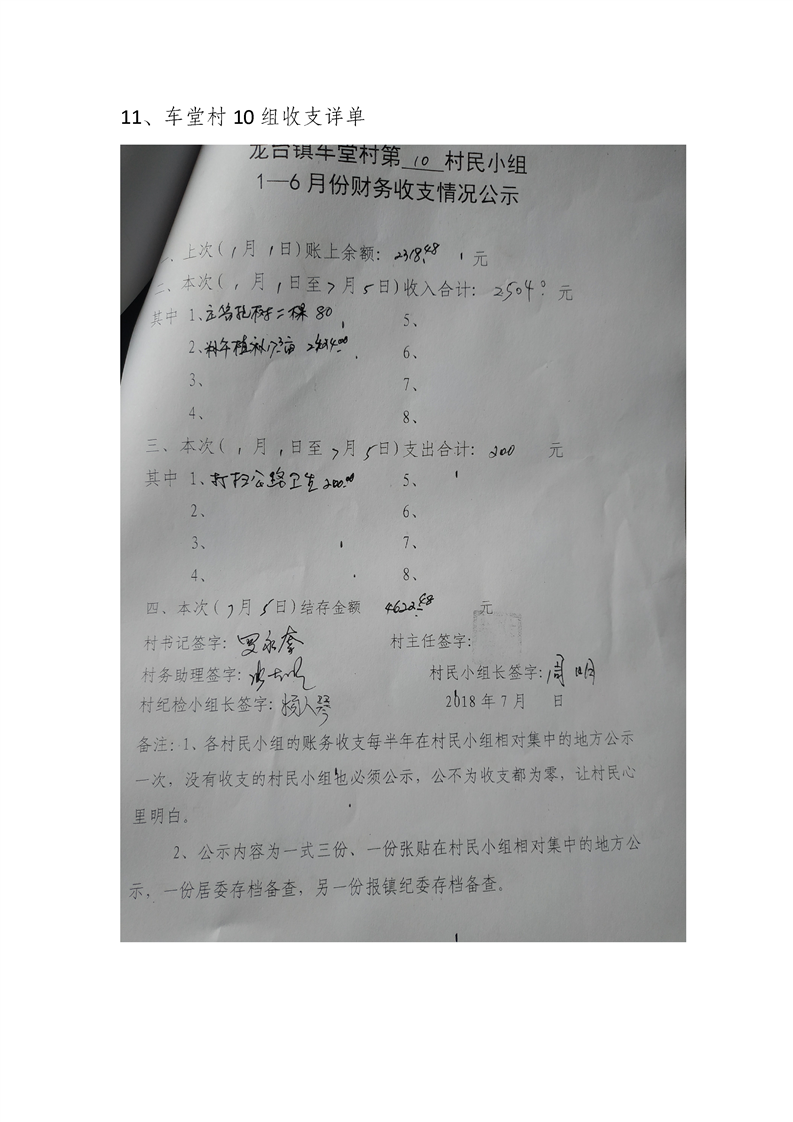 11、车堂村 10 组收支详单
龙台镇车堂村第 10 村民小组
1—6月份财务收支情况公示
一、上次(1月1日)账上余额: 2318.48 元
二、本次(1月1日至7月5日)收入合计: 2504 元
其中 1、 树二棵 80 5、
2、 6、
3、 7、
4、 8、
三、本次(1月1日至7月5日)支出合计: 200 元
其中 1、打扫公路卫生200.00 5、
2、 6、
3、 7、
4、 8、
四、本次(7月5日)结存金额 4622.48 元
村书记签字: 村主任签字:
村务助理签字: 村民小组长签字: 周明
村纪检小组长签字: 2018年7月 日
备注: 1、各村民小组的账务收支每半年在村民小组相对集中的地方公示
一次，没有收支的村民小组也必须公示，公不为收支都为零，让村民心
里明白。
2、公示内容为一式三份、一份张贴在村民小组相对集中的地方公
示，一份居委存档备查，另一份报镇纪委存档备查。